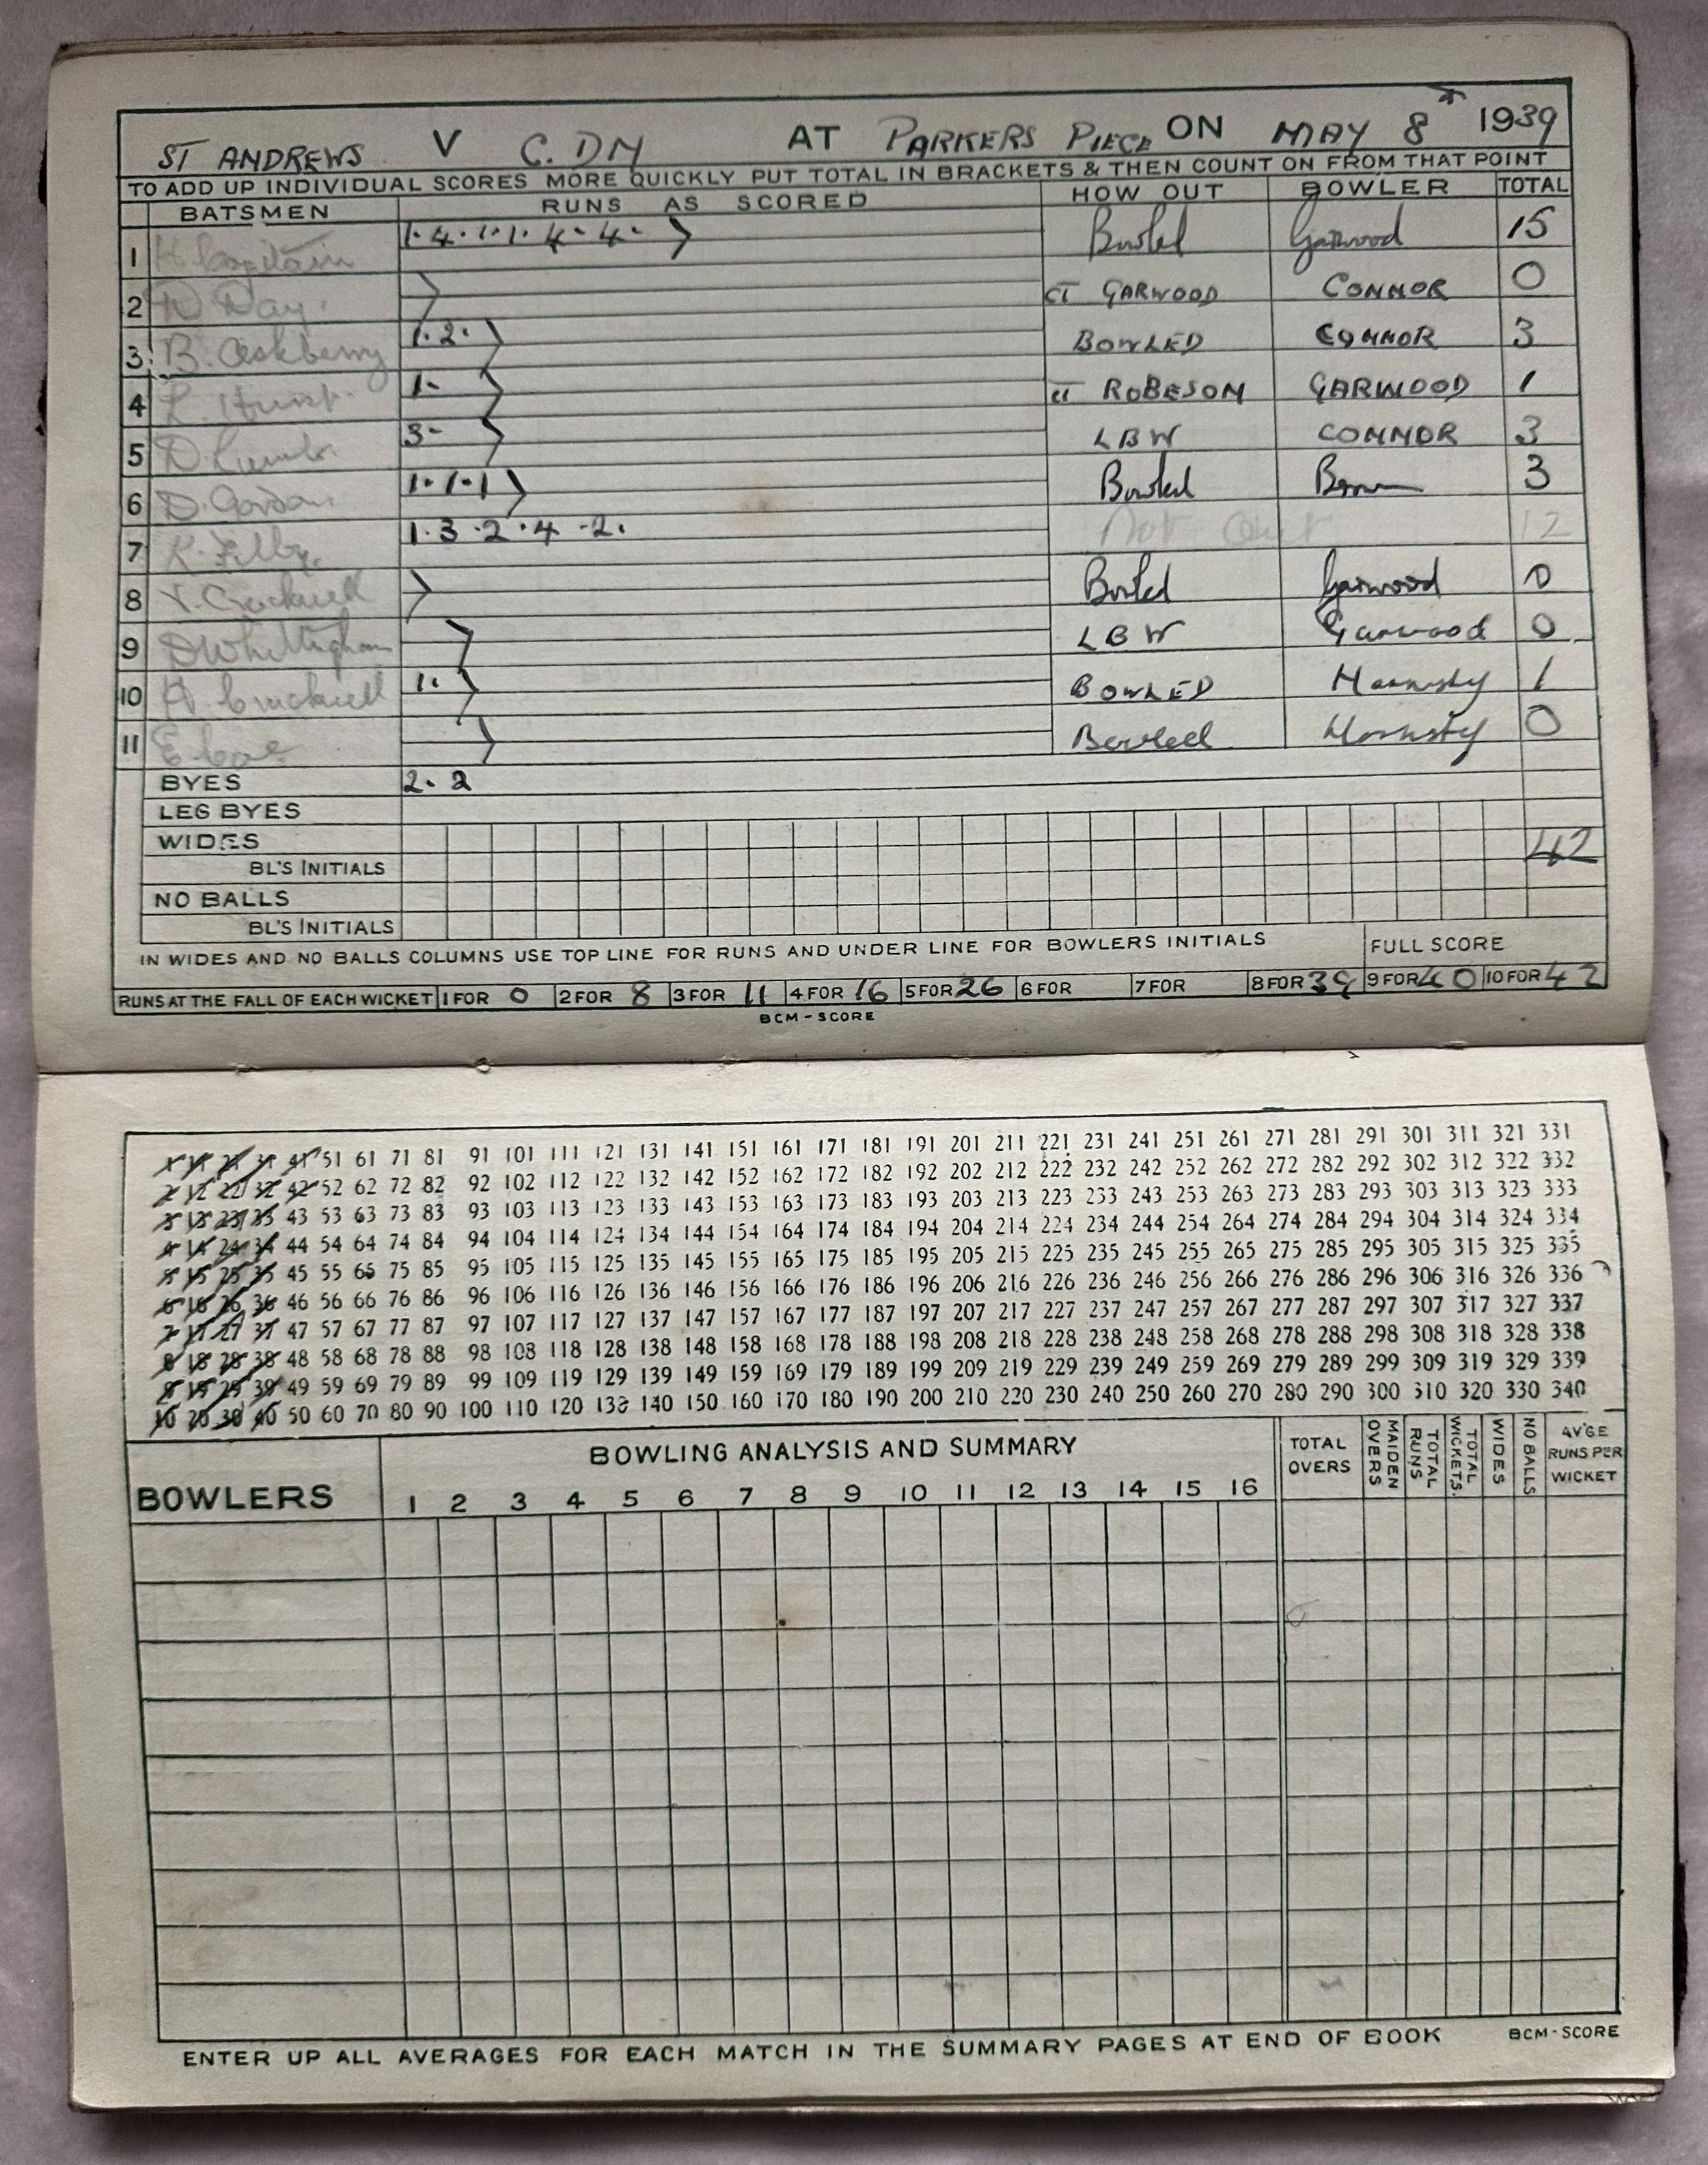 ST ANDREWS V C. DM AT PARKERS PIECE ON MAY 8th 1939
TO ADD UP INDIVIDUAL SCORES MORE QUICKLY PUT TOTAL IN BRACKETS & THEN COUNT ON FROM THAT POINT
BATSMEN RUNS AS SCORED HOW OUT BOWLER TOTAL
1 H Capitain 1 · 4 · 1 · 1 · 4 · 4 · Bowled Garwood 15
2 Day. CT GARWOOD CONNOR 0
3 B. 1 · 2 · BOWLED CONNOR 3
4 1 - ct ROBESON GARWOOD 1
5 D. 3 - LBW CONNOR 3
6 D. Gordon 1 · 1 · 1 Bowled Brown 3
7 1 · 3 · 2 · 4 - 2 · Not Out 12
8 Cracknell Bowled Garwood 0
9 D Whittingham LBW Garwood 0
10 Cracknell 1 · BOWLED Hornsby 1
11 E. Coe Bowled Hornsby 0
BYES 2 · 2
LEG BYES
WIDES 42
BL'S INITIALS
NO BALLS
BL'S INITIALS
IN WIDES AND NO BALLS COLUMNS USE TOP LINE FOR RUNS AND UNDER LINE FOR BOWLERS INITIALS FULL SCORE
RUNS AT THE FALL OF EACH WICKET 1 FOR 0 2 FOR 8 3 FOR 11 4 FOR 16 5 FOR 26 6 FOR 7 FOR 8 FOR 39 9 FOR 40 10 FOR 42
BCM - SCORE
1 11 21 31 41 51 61 71 81 91 101 111 121 131 141 151 161 171 181 191 201 211 221 231 241 251 261 271 281 291 301 311 321 331
2 12 22 32 42 52 62 72 82 92 102 112 122 132 142 152 162 172 182 192 202 212 222 232 242 252 262 272 282 292 302 312 322 332
3 13 23 33 43 53 63 73 83 93 103 113 123 133 143 153 163 173 183 193 203 213 223 233 243 253 263 273 283 293 303 313 323 333
4 14 24 34 44 54 64 74 84 94 104 114 124 134 144 154 164 174 184 194 204 214 224 234 244 254 264 274 284 294 304 314 324 334
5 15 25 35 45 55 65 75 85 95 105 115 125 135 145 155 165 175 185 195 205 215 225 235 245 255 265 275 285 295 305 315 325 335
6 16 26 36 46 56 66 76 86 96 106 116 126 136 146 156 166 176 186 196 206 216 226 236 246 256 266 276 286 296 306 316 326 336
7 17 27 37 47 57 67 77 87 97 107 117 127 137 147 157 167 177 187 197 207 217 227 237 247 257 267 277 287 297 307 317 327 337
8 18 28 38 48 58 68 78 88 98 108 118 128 138 148 158 168 178 188 198 208 218 228 238 248 258 268 278 288 298 308 318 328 338
9 19 29 39 49 59 69 79 89 99 109 119 129 139 149 159 169 179 189 199 209 219 229 239 249 259 269 279 289 299 309 319 329 339
10 20 30 40 50 60 70 80 90 100 110 120 130 140 150 160 170 180 190 200 210 220 230 240 250 260 270 280 290 300 310 320 330 340
BOWLERS
BOWLING ANALYSIS AND SUMMARY
1 2 3 4 5 6 7 8 9 10 11 12 13 14 15 16
TOTAL OVERS
MAIDEN OVERS
TOTAL RUNS
TOTAL WICKETS.
WIDES
NO BALLS
AV'GE RUNS PER WICKET
ENTER UP ALL AVERAGES FOR EACH MATCH IN THE SUMMARY PAGES AT END OF BOOK BCM - SCORE